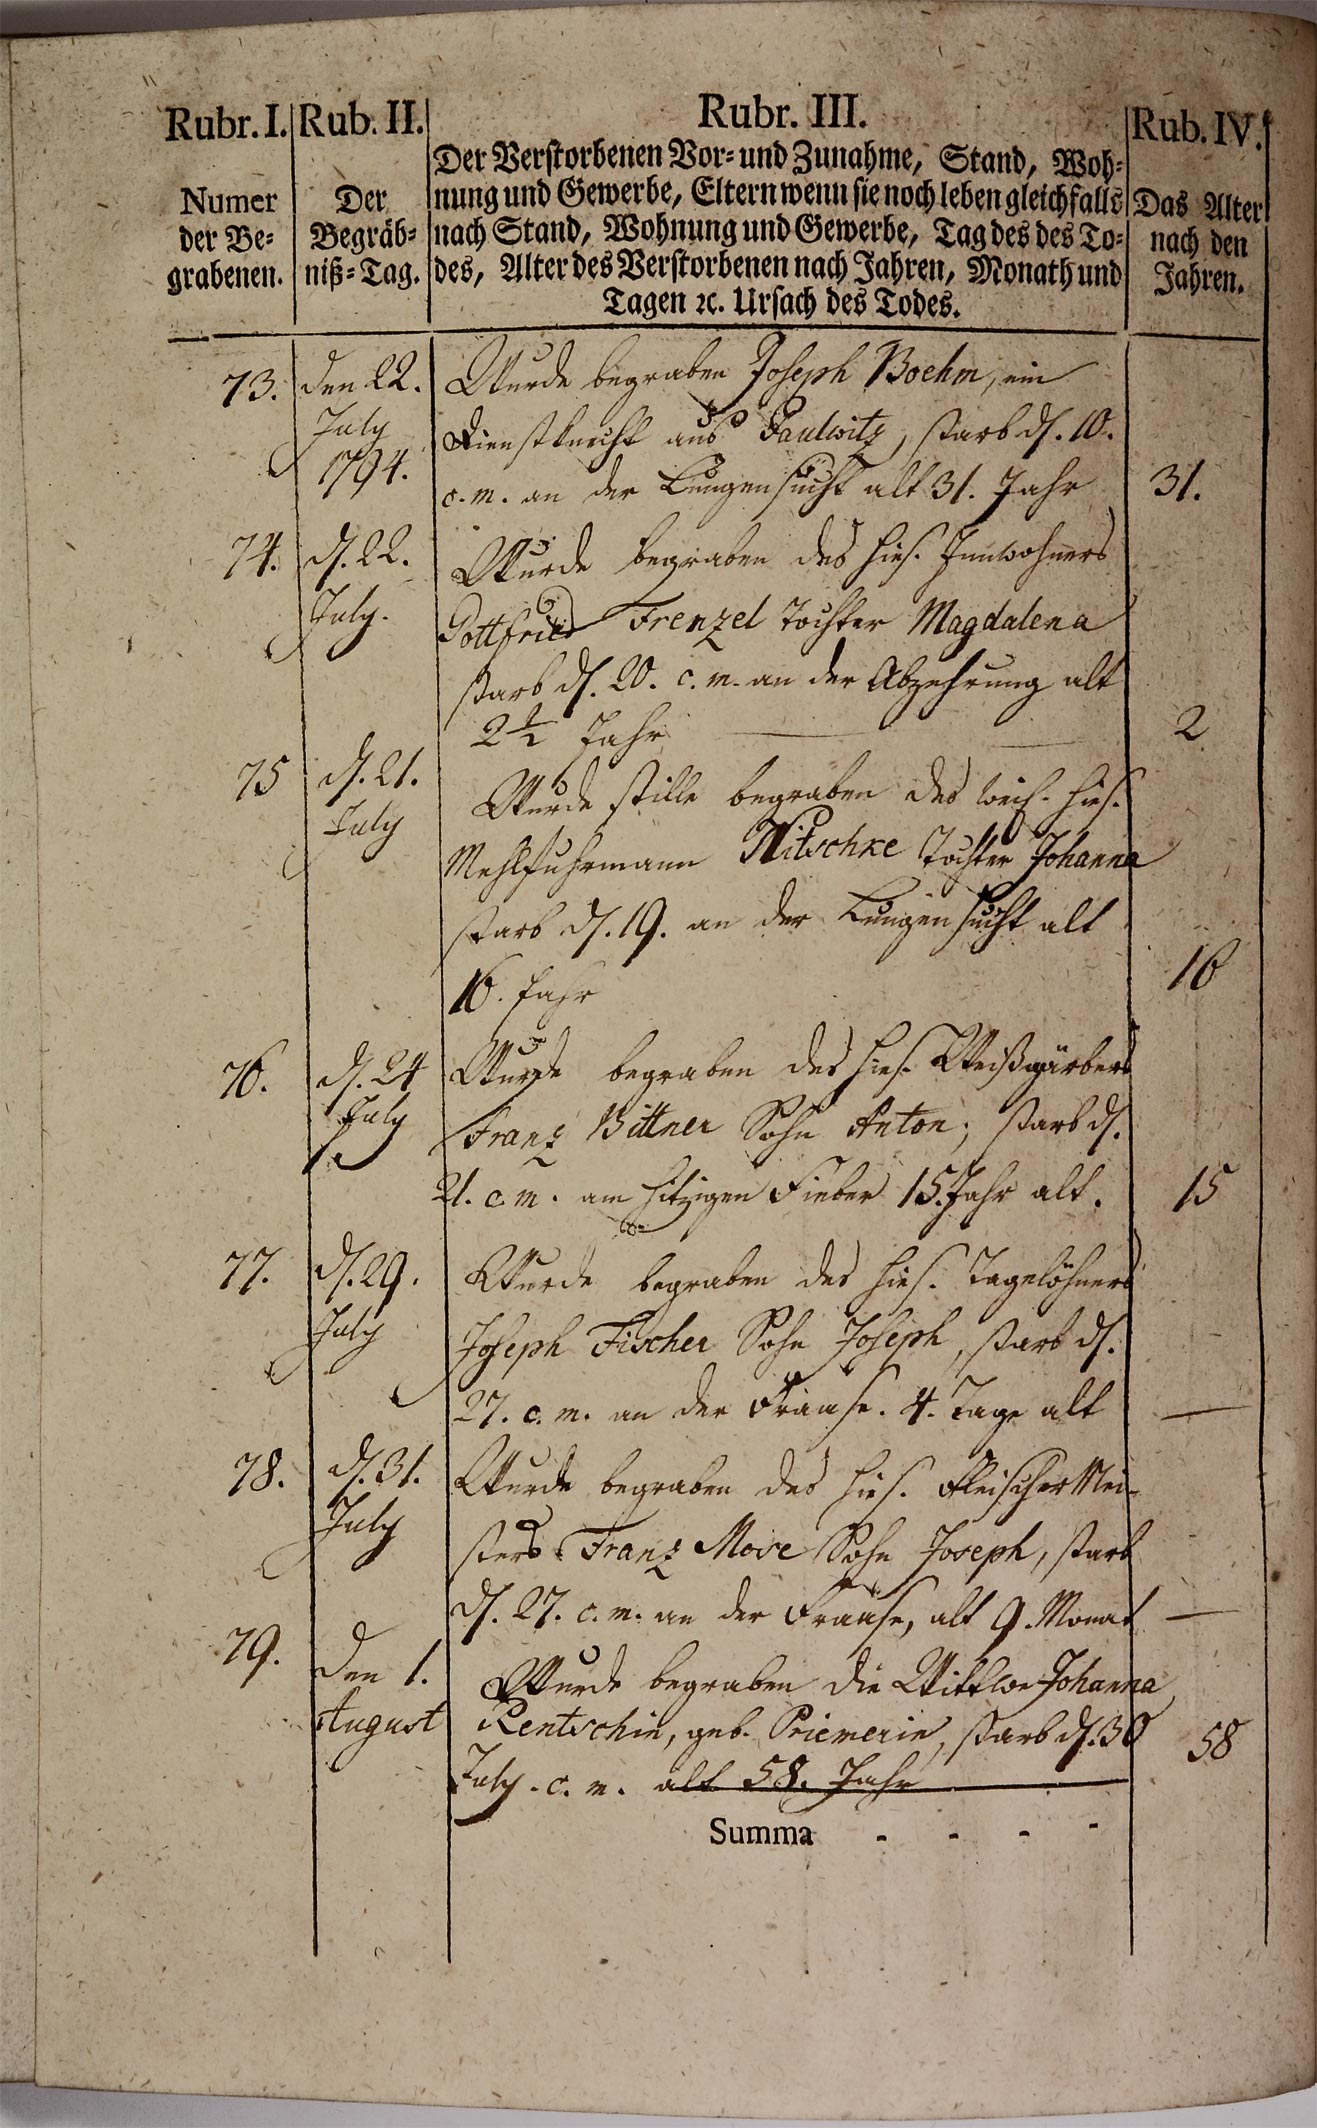 Rubr. I. Rub. II. Rubr. III. Rub. IV.
Numer
der Be-
grabenen.
Der
Begräb-
niß-Tag.
Der Verstorbenen Vor- und Zunahme, Stand, Woh-
nung und Gewerbe, Eltern wenn sie noch leben gleichfalls
nach Stand, Wohnung und Gewerbe, Tag des des To-
des, Alter des Verstorbenen nach Jahren, Monath und
Tagen ꝛc. Ursach des Todes.
Das Alter
nach den
Jahren.
73. den 22. Wurde begraben Joseph Boehm, ein
July Dienstknecht aus Paulwitz, starb d. 10.
1794. c. m. an der Lungensucht alt 31. Jahr 31.
74. d. 22. Wurde begraben des hies. Innwohners
July. Gottfried Frenzel Tochter Magdalena
starb d. 20. c. m. an der Abzehrung alt
2½ Jahr 2
75 d. 21. Wurde stille begraben des weil. hies.
July Mehlfuhrmann Nitschke Tochter Johanna
starb d. 19. an der Lungensucht alt
16. Jahr 16
76. d. 24 Wurde begraben des hies. Weißgärbers
July Franz Bittner Sohn Anton, starb d.
21. c m. am hitzigen Fieber 15. Jahr alt. 15
77. d. 29. Wurde begraben des hies. Tagelöhners
July Joseph Fischer Sohn Joseph, starb d.
27. c. m. an der Fraise. 4. Tage alt —
78. d. 31. Wurde begraben des hies. Fleischer Mei-
July sters Franz Move Sohn Joseph, starb
d. 27. c. m. an der Fraise, alt 9. Monat —
79. den 1. Wurde begraben die Wittwe Johanna
August Rentschin, geb. Priemerin, starb d. 30
July. c. m. alt 58. Jahr 58
Summa - - - -